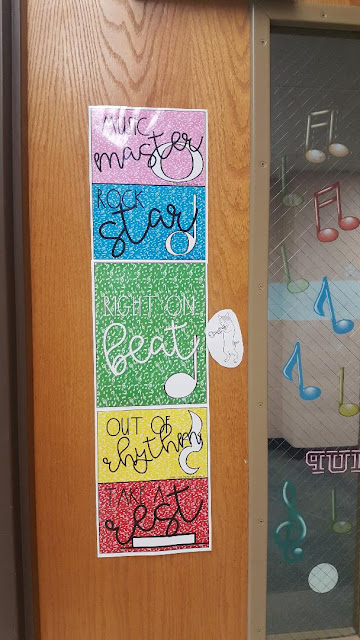 MUSIC
master
ROCK
star
RIGHT ON
beat
OUT OF
rhythm
TAKE A
rest